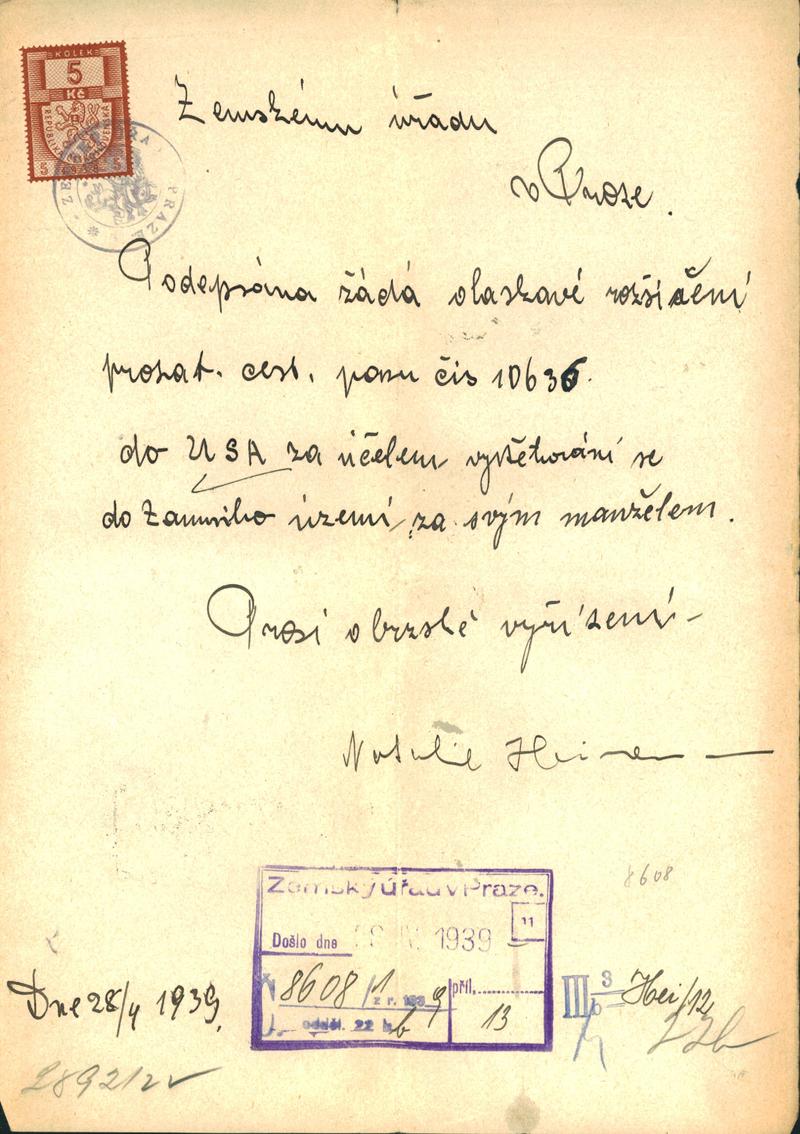 KOLEK
5
Kč
REPUBLIKA ČESKOSLOVENSKÁ
5 5
ZEMSKÝ ÚŘAD V PRAZE
Zemskému úřadu
v Praze.
Podepsána žádá o laskavé rozšíření
prozat. cest. pasu čis 10636.
do USA za účelem vystěhování se
do území, za svým manželem.
Prosí o brzské vyřízení-
Natalie
8608
Zemský úřad v Praze.
11
Došlo dne 28 IV. 1939
8608/1 9
z r. 1939
příl.
odděl. 22 b
13
III 3 Hei/12
Dne 28/4 1939.
22b